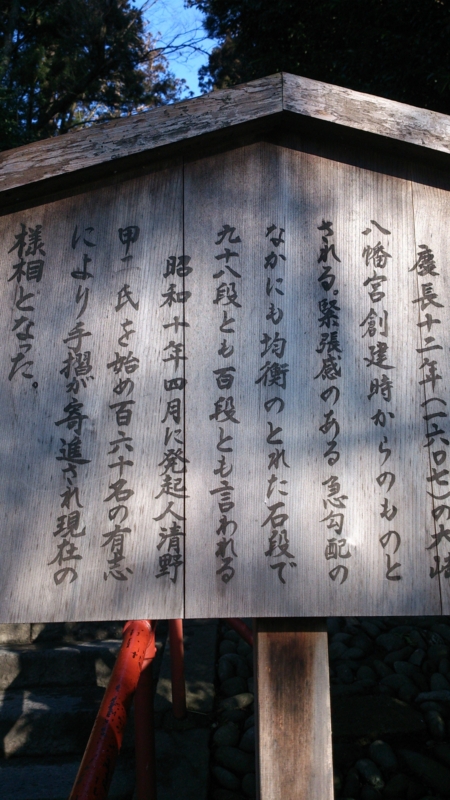 慶長十二年(一六〇七)の大崎
八幡宮創建時からのものと
される。緊張感のある急勾配の
なかにも均衡のとれた石段で
九十八段とも百段とも言われる
昭和十年四月に発起人清野
甲二氏を始め百六十名の有志
により手摺が寄進され現在の
様相となった。